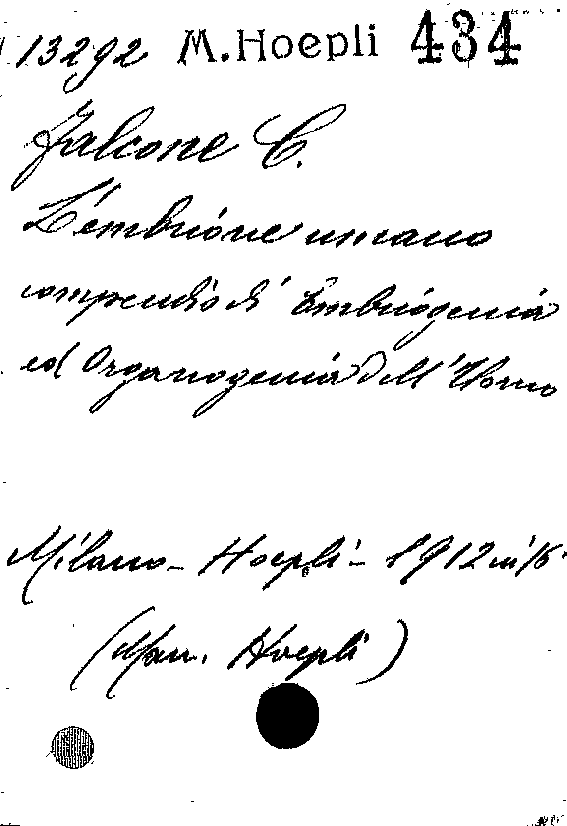 13292 M. Hoepli 434
Falcone C.
L'embrione umano
compendio di Embriogenia
ed Organogenia dell'Uomo
Milano - Hoepli - 1912 in 16.
(Man. Hoepli)